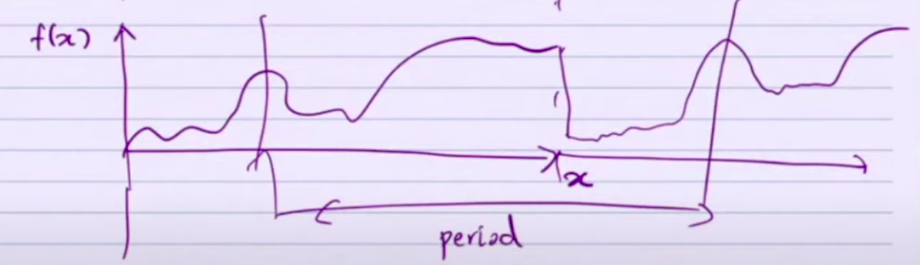 f(x)
x
period